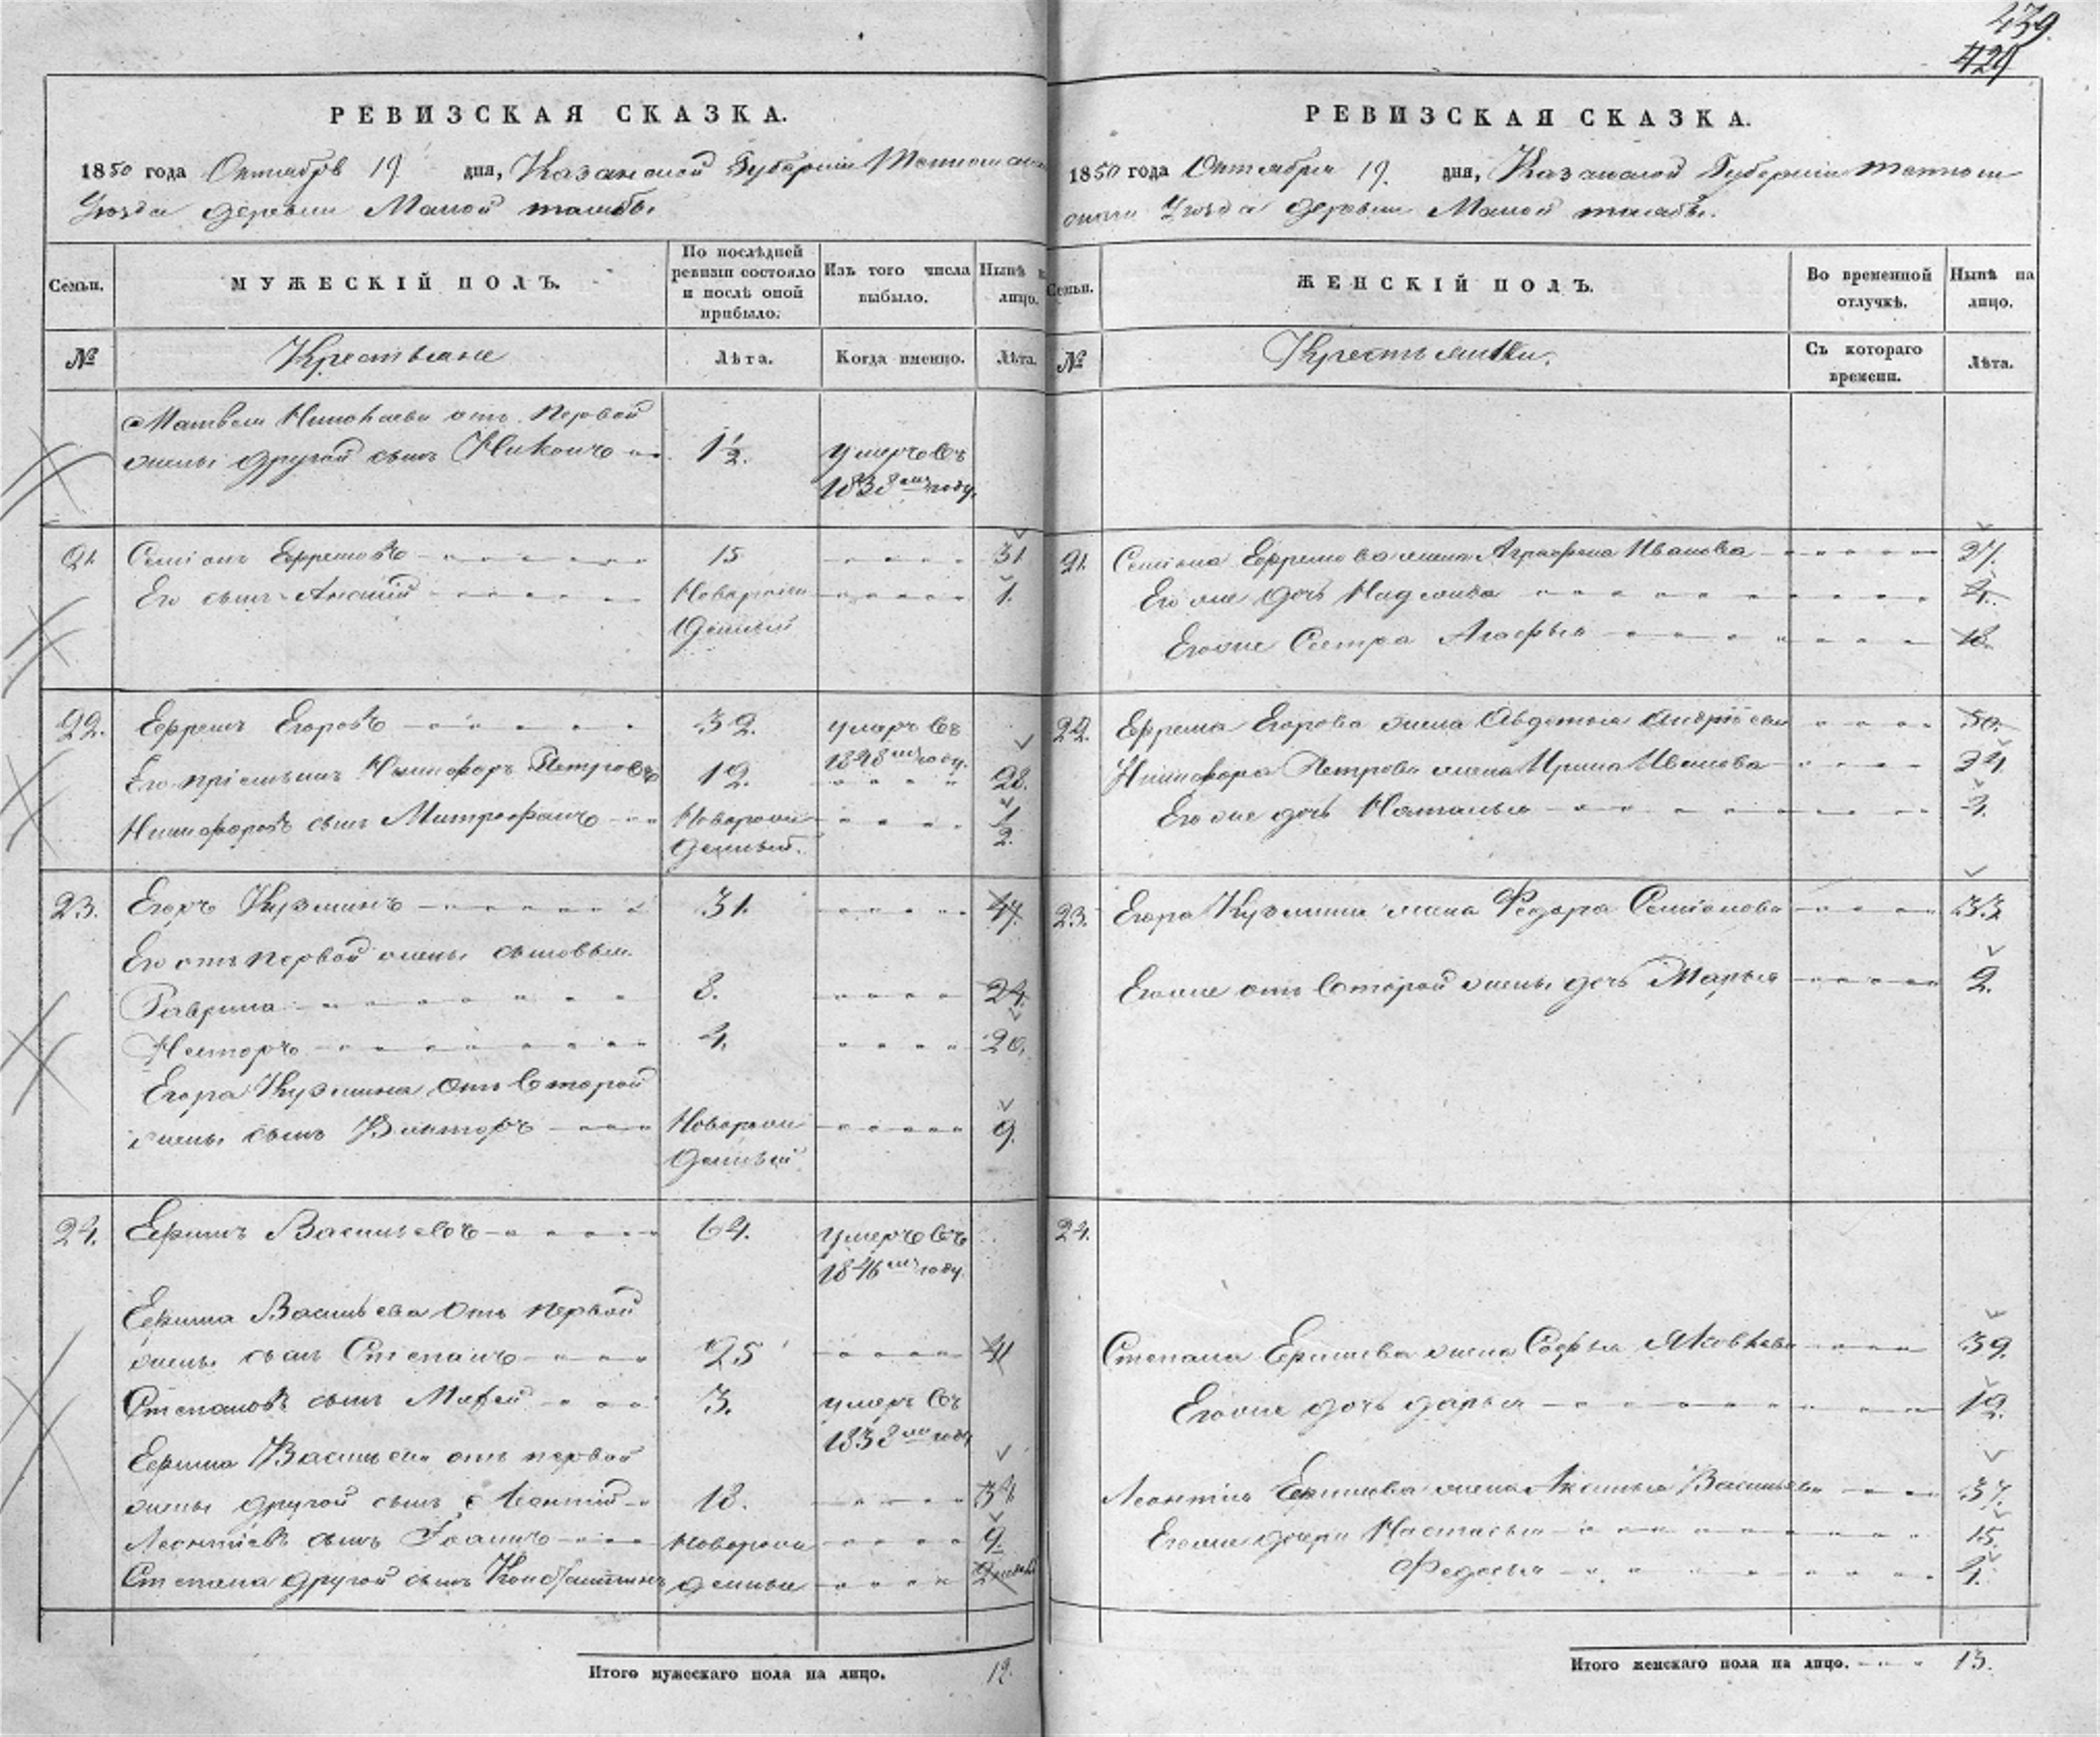 439.
429
РЕВИЗСКАЯ СКАЗКА.
1850 года Октября 19 дня, Казанской Губернии
Уезда деревни Малой
Семьи. МУЖЕСКІЙ ПОЛЪ. По послѣдней ревизіи состояло и послѣ оной прибыло. Изъ того числа выбыло. Нынѣ на лицо.
№ Крестьяне Лѣта. Когда именно. Лѣта.
Матвея Николаева отъ первой
жены другой сынъ Никонъ 1½. умеръ въ
1838мъ году.
21 Семіонъ Ефремовъ 15 31
Его сынъ Новорож 1.
денный
22. Ефремъ Егоровъ 32. умеръ въ
1848мъ году.
Его пріемышъ Никифоръ Петровъ 12. 28.
Никифоровъ сынъ Митрофанъ Новорож ½.
денный.
23. Егоръ Кузминъ 31. 47
Его отъ первой жены сыновья
Гаврила 8. 24.
Несторъ 4. 20.
Егора Кузмина отъ второй
жены сынъ Викторъ Новорож 9.
денный
24. Васильевъ 64. умеръ въ
1846мъ году
Васильева отъ первой
жены сынъ Степанъ 25 41
Степановъ сынъ 3. умеръ въ
1838мъ году
Васильева отъ первой
жены другой сынъ Леонтій 18. 34
Леонтіевъ сынъ Іоаннъ новорож 9.
Степана другой сынъ Константинъ денные
Итого мужескаго пола на лицо. 12.
РЕВИЗСКАЯ СКАЗКА.
1850 года Октября 19. дня, Казанской Губерніи
Уезда деревни Малой
Семьи. ЖЕНСКІЙ ПОЛЪ. Во временной отлучкѣ. Нынѣ на лицо.
№ Крестьянки. Съ котораго времени. Лѣта.
21. Семіона Ефремова жена Аграфена Иванова 27.
Его же дочь 4.
Его же Сестра Агафья 18.
22. Ефрема Егорова жена Авдотья 50.
Никифора Петрова жена Ирина Иванова 24
Его же дочь Наталья 4.
23. Егора Кузмина жена Федора Семіонова 33
Его же отъ второй жены дочь Марья 2.
24.
Степана жена Софья Яковлева 39.
Его же дочь дарья 12.
Леонтія жена Аксинья Васильева 37.
Его же дочери Настасья 15.
Федосья 4.
Итого женскаго пола на лицо. 13.